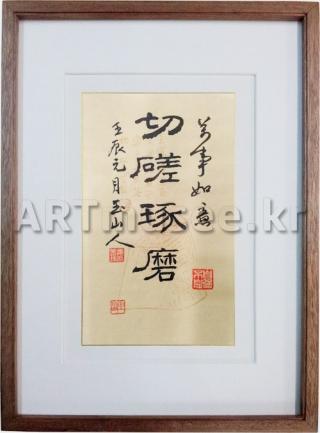 万事如意
切磋琢磨
壬辰元月玉山人
ARTmusee.kr